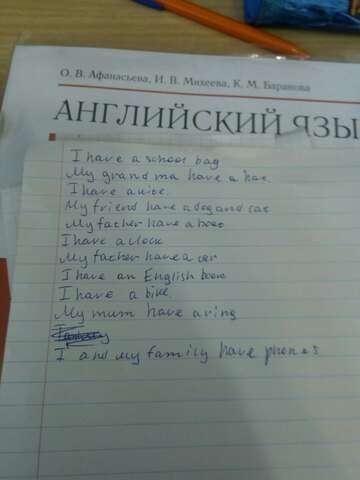 О. В. Афанасьева, И. В. Михеева, К. М. Баранова
АНГЛИЙСКИЙ ЯЗЫ
I have a school bag
My grand ma have a
I have a
My friend have a dog and cat
My father have a
I have a clock
My father have a car
I have an English book
I have a bike.
My mum have a ring
I and my family have phones